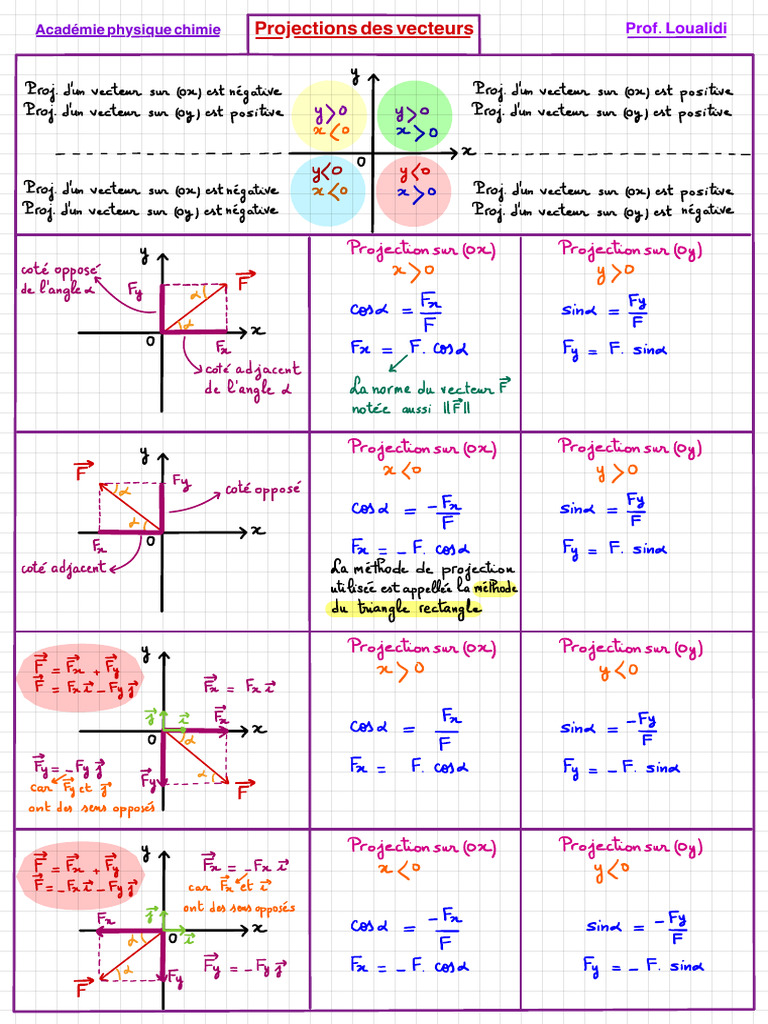 Académie physique chimie
Projections des vecteurs
Prof. Loualidi
Proj. d'un vecteur sur (ox) est négative
Proj. d'un vecteur sur (oy) est positive
y
y>0
x<0
y>0
x>0
Proj. d'un vecteur sur (ox) est positive
Proj. d'un vecteur sur (oy) est positive
0
x
Proj. d'un vecteur sur (ox) est négative
Proj. d'un vecteur sur (oy) est négative
y<0
x<0
y<0
x>0
Proj. d'un vecteur sur (ox) est positive
Proj. d'un vecteur sur (oy) est négative
y
coté opposé
de l'angle α
Fy
F⃗
α
α
0
x
Fx
coté adjacent
de l'angle α
Projection sur (ox)
x>0
cosα = Fx/F
Fx = F. cosα
La norme du vecteur F⃗
notée aussi ||F⃗||
Projection sur (oy)
y>0
sinα = Fy/F
Fy = F. sinα
y
F⃗
Fy
α
coté opposé
α
0
x
Fx
coté adjacent
Projection sur (ox)
x<0
cosα = -Fx/F
Fx = - F. cosα
La méthode de projection
utilisée est appellée la méthode
du triangle rectangle
Projection sur (oy)
y>0
sinα = Fy/F
Fy = F. sinα
y
F⃗ = F⃗x + F⃗y
F⃗ = Fx i⃗ - Fy j⃗
F⃗x = Fx i⃗
j⃗
i⃗
F⃗x
0
α
x
F⃗y = -Fy j⃗
car F⃗y et j⃗
ont des sens opposés
F⃗y
α
F⃗
Projection sur (ox)
x>0
cosα = Fx/F
Fx = F. cosα
Projection sur (oy)
y<0
sinα = -Fy/F
Fy = - F. sinα
y
F⃗ = F⃗x + F⃗y
F⃗ = -Fx i⃗ - Fy j⃗
F⃗x = -Fx i⃗
car F⃗x et i⃗
ont des sens opposés
F⃗x
j⃗
α
0
i⃗
x
α
F⃗
F⃗y
F⃗y = -Fy j⃗
Projection sur (ox)
x<0
cosα = -Fx/F
Fx = - F. cosα
Projection sur (oy)
y<0
sinα = -Fy/F
Fy = - F. sinα